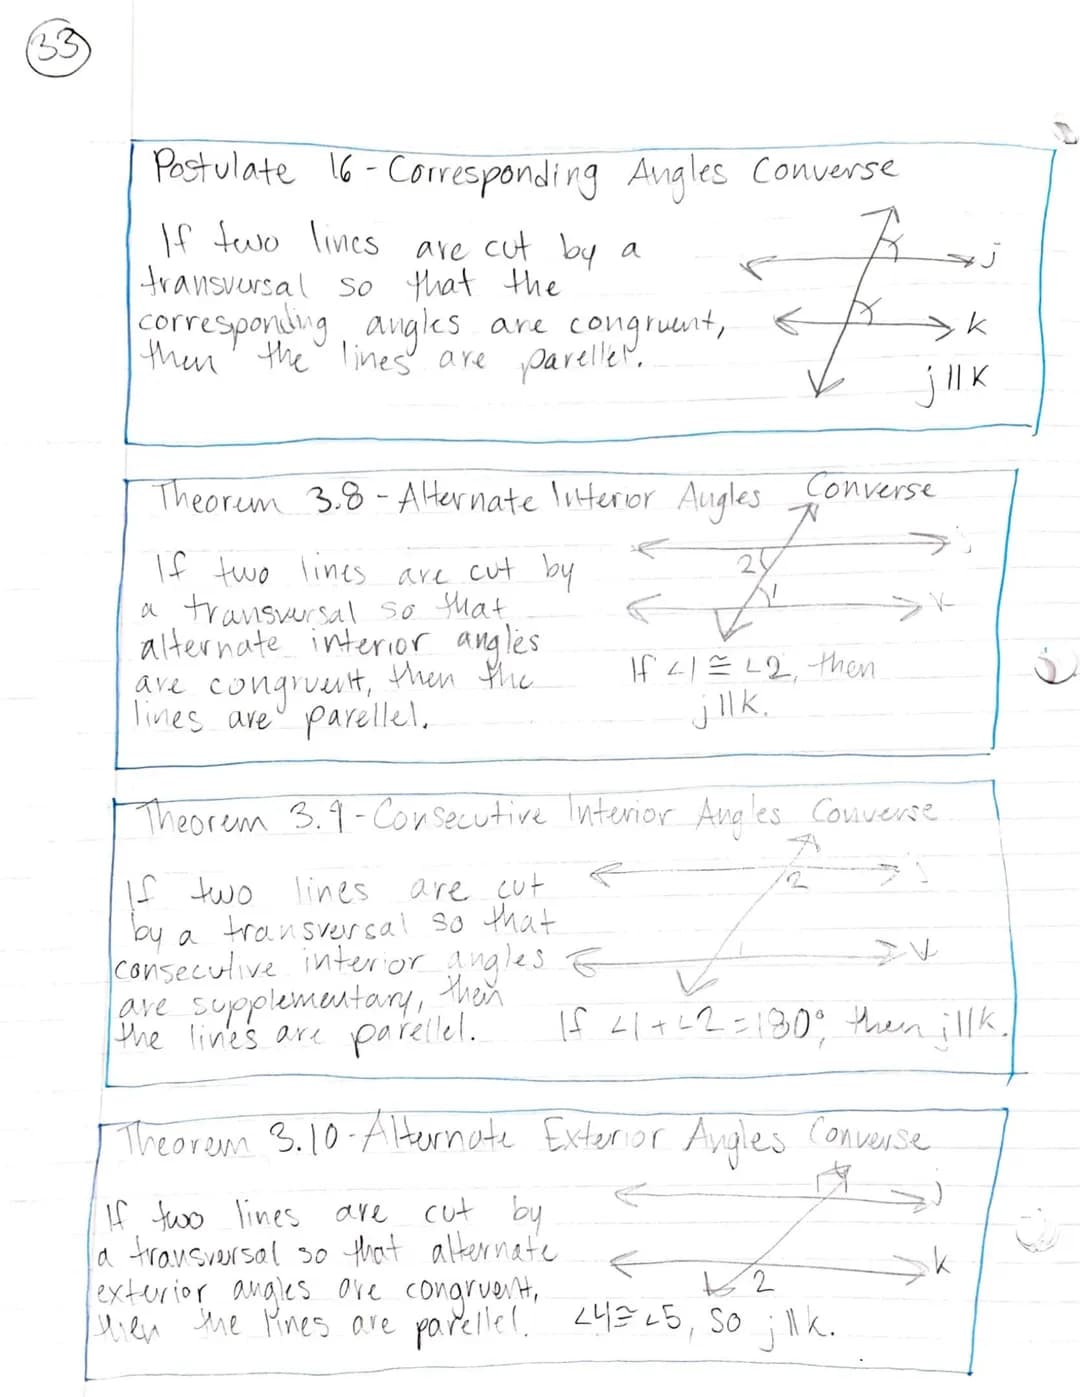 33
Postulate 16 - Corresponding Angles Converse
If two lines are cut by a
transversal so that the
corresponding angles are congruent,
then the lines are parellel.
j
k
j || k
Theorem 3.8 - Alternate Interior Angles Converse
If two lines are cut by
a transversal so that
alternate interior angles
are congruent, then the
lines are parellel.
j
2
1
k
If ∠1 ≅ ∠2, then
j || k.
Theorem 3.9 - Consecutive Interior Angles Converse
If two lines are cut
by a transversal so that
consecutive interior angles
are supplementary, then
the lines are parellel.
j
2
1
k
If ∠1 + ∠2 = 180°, then j || k.
Theorem 3.10 - Alternate Exterior Angles Converse
If two lines are cut by
a transversal so that alternate
exterior angles are congruent,
then the lines are parellel.
j
k
2
∠4 ≅ ∠5, so j || k.